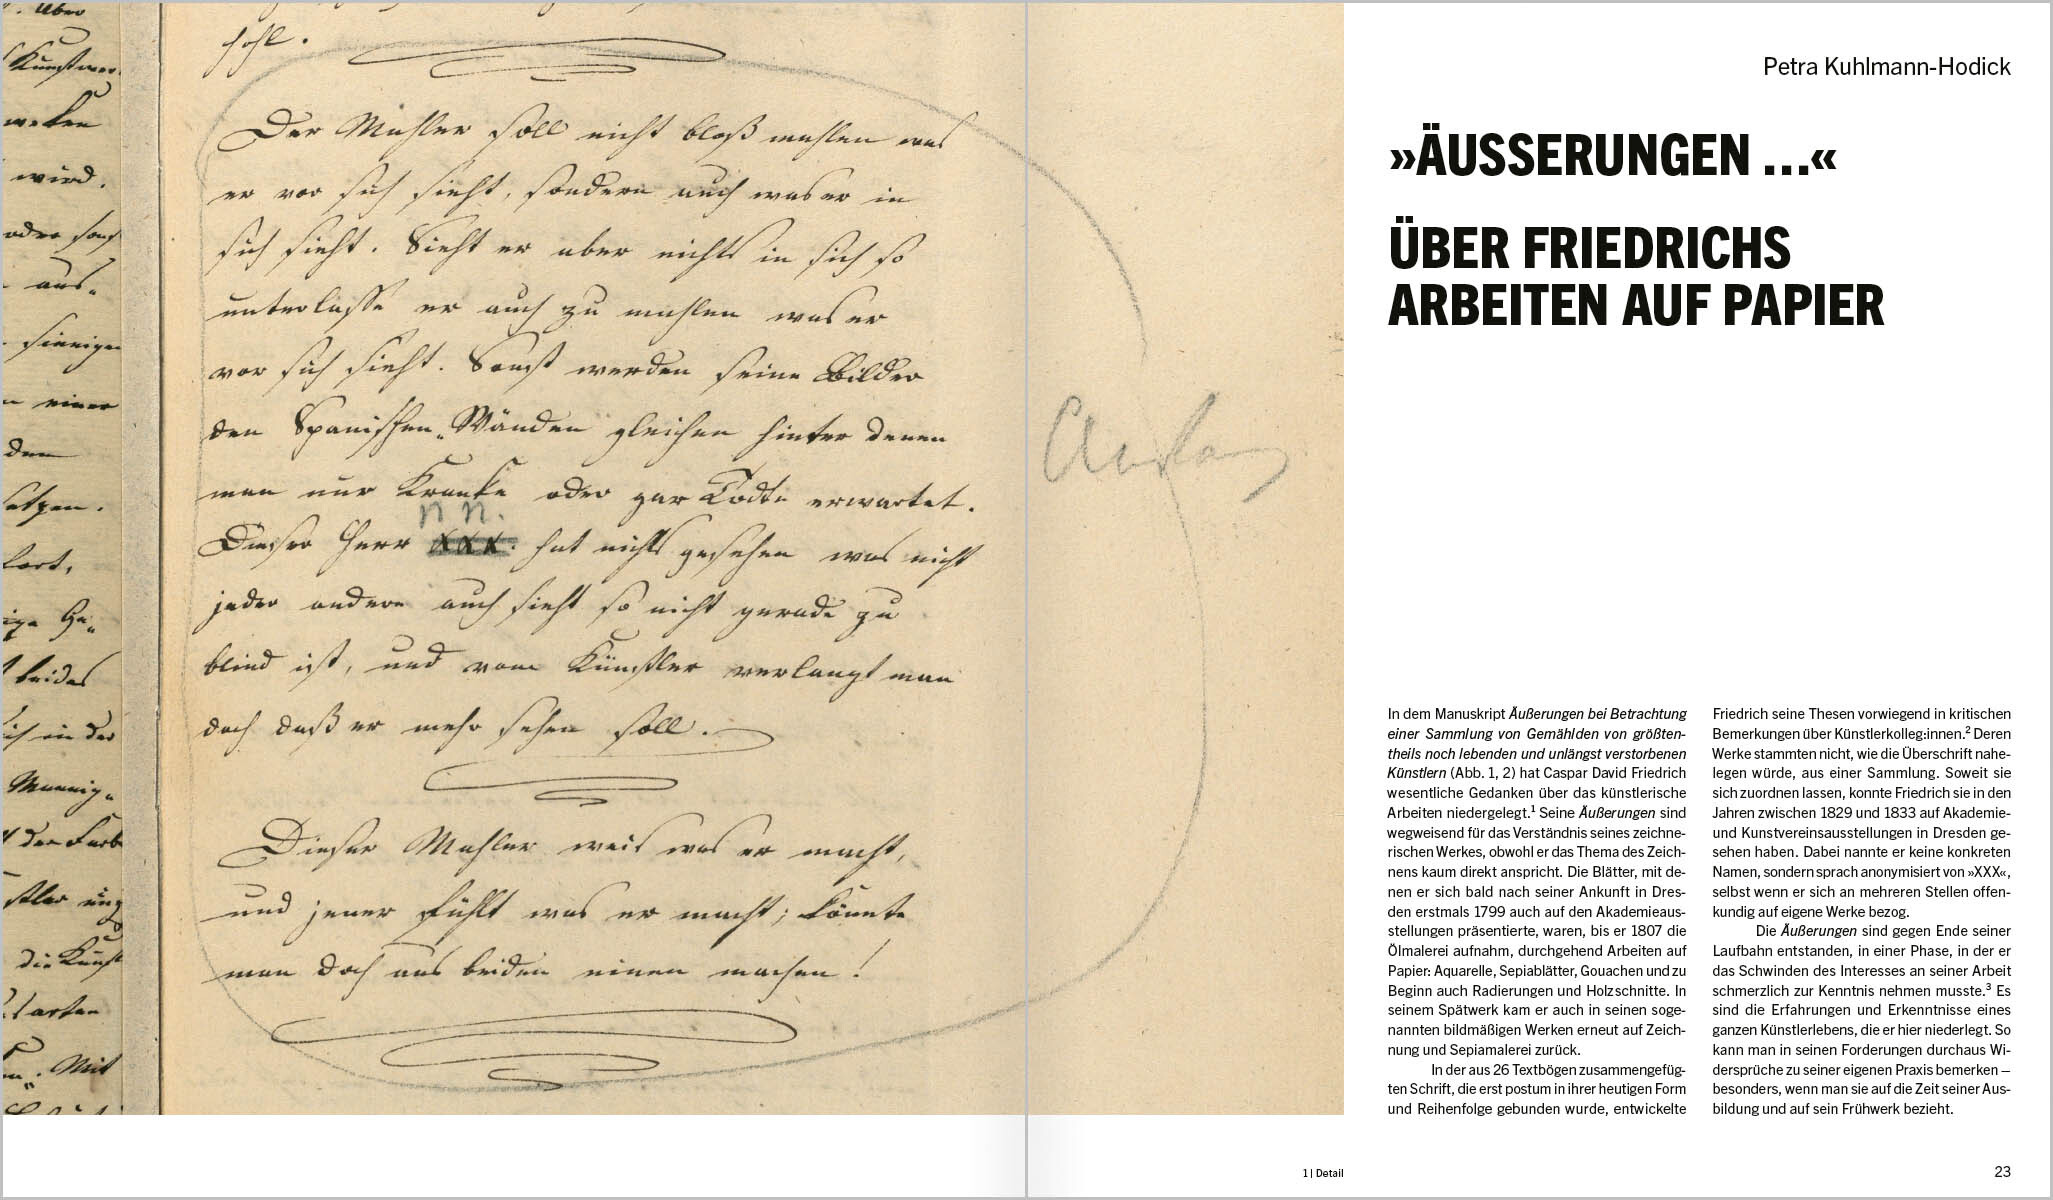 . über
Kunstwer
wird.
oder sonst
aus„
sinnigen
einer
dem
fort,
beides
ich in der
Mannig„
der Farb
die Kunst
arten
. Mit
hohl.
Der Mahler soll nicht bloß mahlen was
er vor sich sieht, sondern auch was er in
sich sieht. Sieht er aber nichts in sich so
unterlasse er auch zu mahlen was er
vor sich sieht. Sonst werden seine Bilder
den Spanischen„Wänden gleichen hinter denen
man nur Kranke oder gar Todte erwartet.
n n.
Dieser Herr XXX. hat nichts gesehen was nicht
jeder andere auch sieht so nicht gerade zu
blind ist, und vom Künstler verlangt man
doch daß er mehr sehen soll.
Dieser Mahler weis was er macht,
und jener fühlt was er macht; könnte
man doch aus beiden einen machen!
Petra Kuhlmann-Hodick
»ÄUSSERUNGEN …«
ÜBER FRIEDRICHS
ARBEITEN AUF PAPIER
In dem Manuskript Äußerungen bei Betrachtung
einer Sammlung von Gemählden von größten-
theils noch lebenden und unlängst verstorbenen
Künstlern (Abb. 1, 2) hat Caspar David Friedrich
wesentliche Gedanken über das künstlerische
Arbeiten niedergelegt.¹ Seine Äußerungen sind
wegweisend für das Verständnis seines zeichne-
rischen Werkes, obwohl er das Thema des Zeich-
nens kaum direkt anspricht. Die Blätter, mit de-
nen er sich bald nach seiner Ankunft in Dres-
den erstmals 1799 auch auf den Akademieaus-
stellungen präsentierte, waren, bis er 1807 die
Ölmalerei aufnahm, durchgehend Arbeiten auf
Papier: Aquarelle, Sepiablätter, Gouachen und zu
Beginn auch Radierungen und Holzschnitte. In
seinem Spätwerk kam er auch in seinen soge-
nannten bildmäßigen Werken erneut auf Zeich-
nung und Sepiamalerei zurück.
In der aus 26 Textbögen zusammengefüg-
ten Schrift, die erst postum in ihrer heutigen Form
und Reihenfolge gebunden wurde, entwickelte
Friedrich seine Thesen vorwiegend in kritischen
Bemerkungen über Künstlerkolleg:innen.² Deren
Werke stammten nicht, wie die Überschrift nahe-
legen würde, aus einer Sammlung. Soweit sie
sich zuordnen lassen, konnte Friedrich sie in den
Jahren zwischen 1829 und 1833 auf Akademie-
und Kunstvereinsausstellungen in Dresden ge-
sehen haben. Dabei nannte er keine konkreten
Namen, sondern sprach anonymisiert von »XXX«,
selbst wenn er sich an mehreren Stellen offen-
kundig auf eigene Werke bezog.
Die Äußerungen sind gegen Ende seiner
Laufbahn entstanden, in einer Phase, in der er
das Schwinden des Interesses an seiner Arbeit
schmerzlich zur Kenntnis nehmen musste.³ Es
sind die Erfahrungen und Erkenntnisse eines
ganzen Künstlerlebens, die er hier niederlegt. So
kann man in seinen Forderungen durchaus Wi-
dersprüche zu seiner eigenen Praxis bemerken –
besonders, wenn man sie auf die Zeit seiner Aus-
bildung und auf sein Frühwerk bezieht.
1 | Detail
23